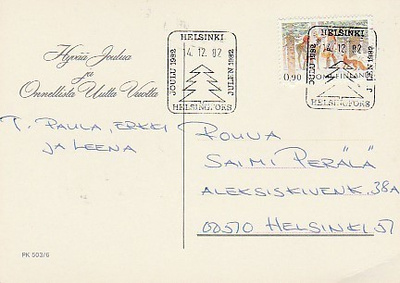 HELSINKI
JOULU 1982
14.12.82
JULEN 1982
HELSINGFORS
HELSINKI
JOULU 1982
14.12.82
JULEN 1982
HELSINGFORS
0,90 SUOMI FINLAND
Hyvää Joulua
ja
Onnellista Uutta Vuotta
T. PAULA, ERKKI
JA LEENA
ROUVA
SAIMI PERÄLÄ
ALEKSISKIVENK. 38A
00510 HELSINKI 51
PK 503/6